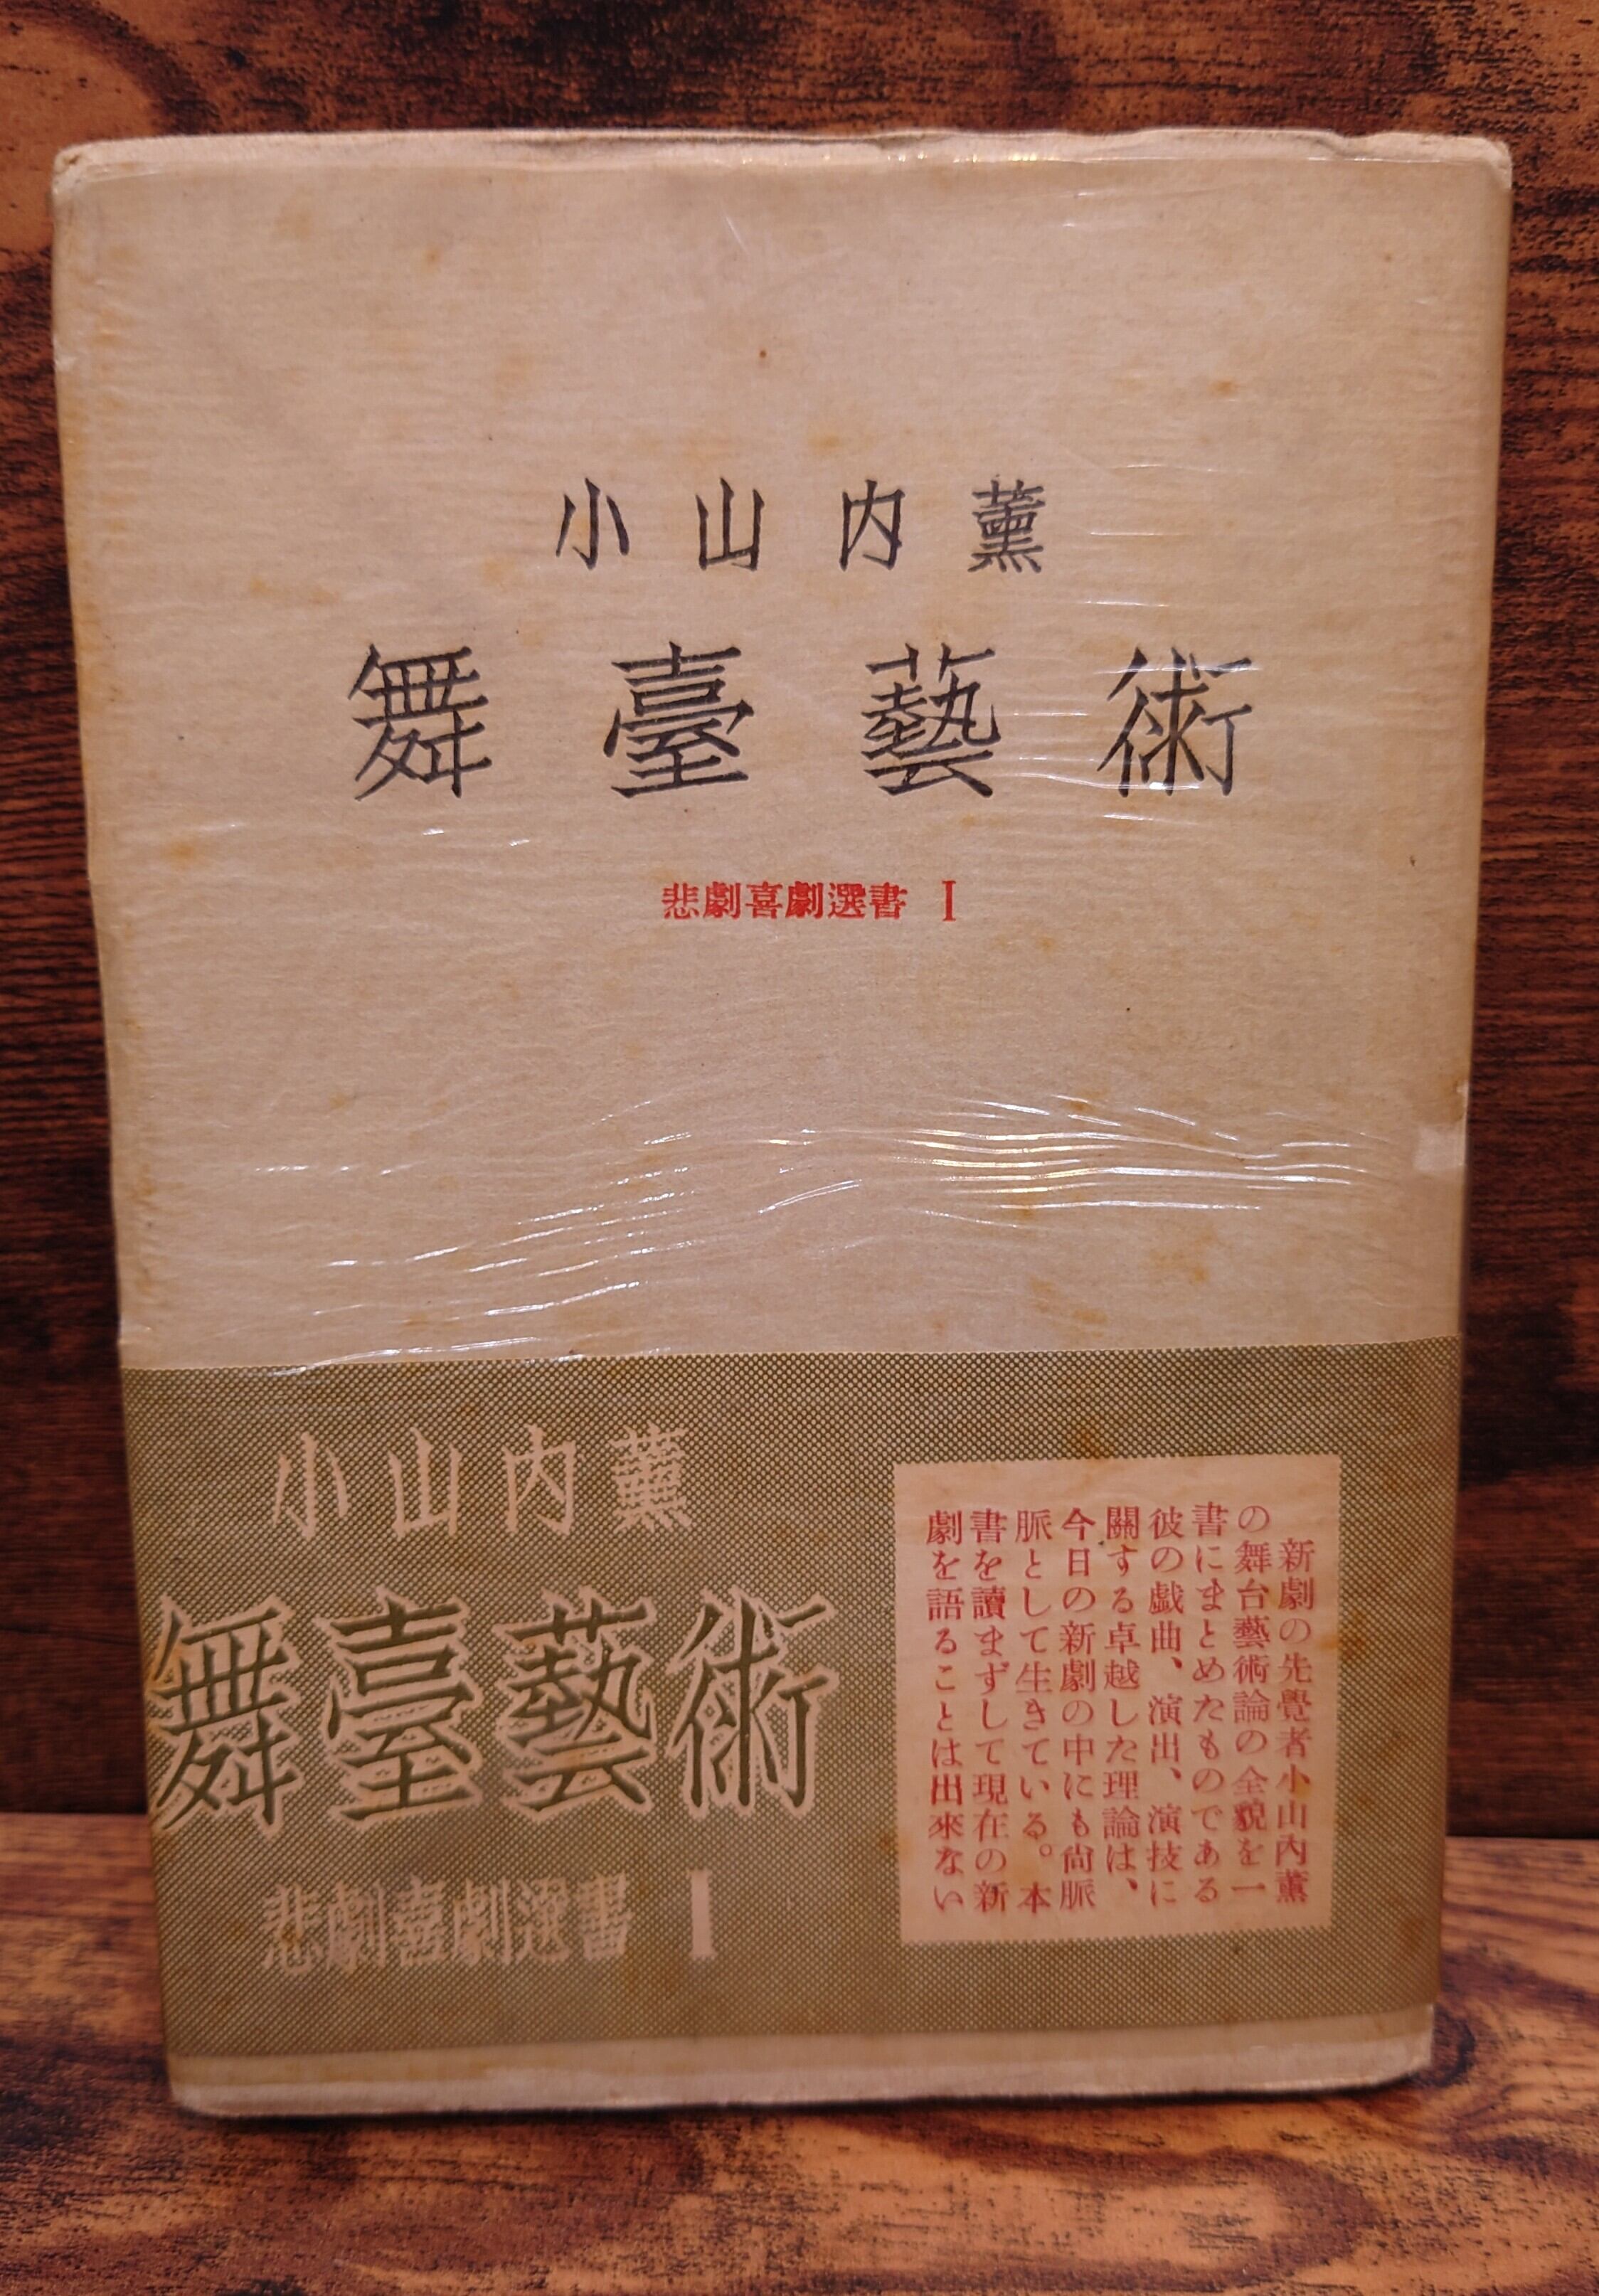 小山内薫
舞臺藝術
悲劇喜劇選書 I
小山内薫
舞臺藝術
悲劇喜劇選書 I
新劇の先覺者小山内薫
の舞台藝術論の全貌を一
書にまとめたものである
彼の戯曲、演出、演技に
關する卓越した理論は、
今日の新劇の中にも尙脈
脈として生きている。本
書を讀まずして現在の新
劇を語ることは出來ない